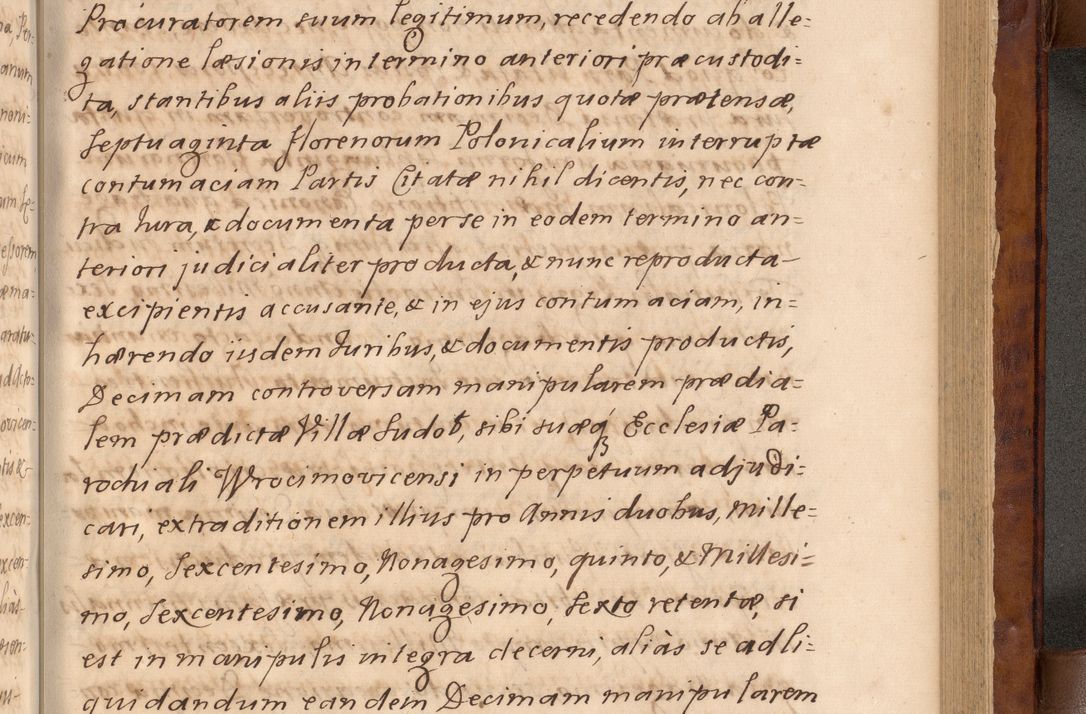 Procuratorem suum legitimum, recedendo ab alle=
gatione læsionis in termino anteriori præcustodi=
ta, stantibus aliis probationibus quotæ prætensæ,
Septuaginta Florenorum Polonicalium interruptæ
contumaciam Partis Citatæ nihil dicentis, nec con=
tra Iura, & documenta per se in eodem termino an=
teriori judicialiter producta, & nunc reproducta
excipientis accusante, & in ejus contumaciam, in=
hærendo iisdem Iuribus, & documentis productis,
Decimam controversam manipularem prædia=
lem prædictæ Villæ, sibi suæq Ecclesiæ Pa=
rochiali Wrocimovicensi in perpetuum adjudi=
cari, extraditionem illius pro Annis duobus, Mille=
simo, Sexcentesimo, Nonagesimo, quinto, & Millesi=
mo, Sexcentesimo, Nonagesimo, Sexto retentæ, si
est in manipulis integra decerni, aliàs se ad li=
quidandum eandem Decimam manipularem